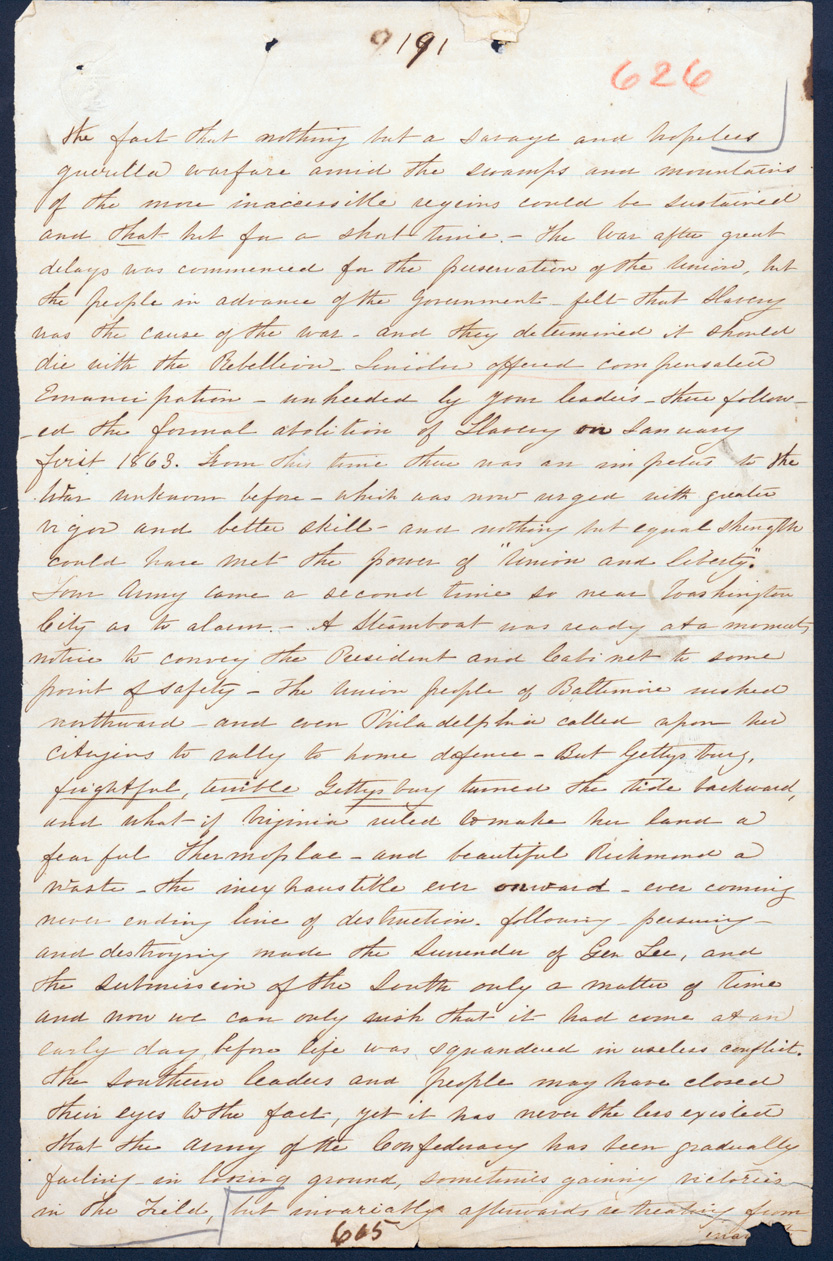 9191
626
the fact that nothing but a savage and hopeless
guerilla warfare amid the swamps and mountains
of the more inaccessible regions could be sustained
and that but for a short time. - The War after great
delays was commenced for the preservation of the Union, but
the people in advance of the Government - felt that Slavery
was the cause of the war - and they determined it should
die with the Rebellion - Lincoln offered compensated
Emancipation - unheeded by your leaders - there follow-
-ed the formal abolition of Slavery on January
first 1863. From this time there was an impetus to the
War unknown before - which was now urged with greater
vigor and better skill - and nothing but equal strength
could have met the power of "Union and liberty".
Your Army came a second time so near Washington
City as to alarm. - A Steamboat was ready at a moments
notice to convey the President and Cabinet to some
point of safety - The Union people of Baltimore rushed
northward - and even Philadelphia called upon her
citizens to rally to home defence - But Gettysburg,
frightful, terrible Gettysburg turned the tide backward,
and what if Virginia ruled to make her land a
fearful Thermoplae - and beautiful Richmond a
waste - the inexhaustible ever onward - ever coming
never ending line of destruction. following - persuing -
and destroying made the Surrender of Gen Lee, and
the submission of the South only a matter of time
and now we can only wish that it had come at an
early day, before life was squandered in useless conflict.
The southern leaders and people may have closed
their eyes to the fact, yet it has never the less existed
that the Army of the Confederacy has been gradually
failing - in loosing ground, sometimes gaining victories
in the Field, but invariably afterwards retreating from
665